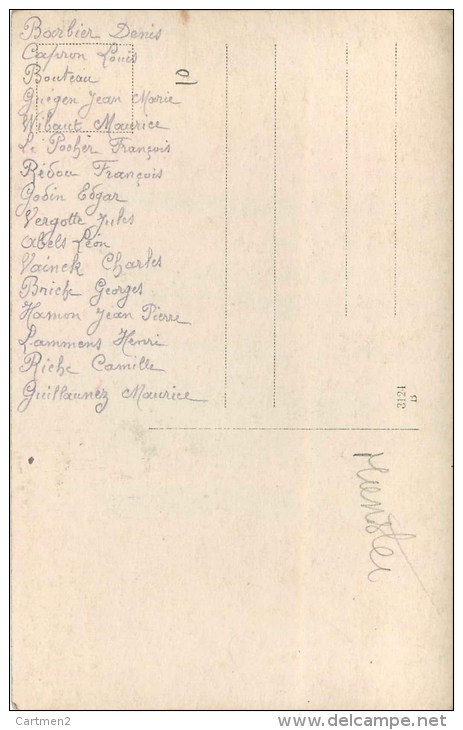 Barbier Denis
Capron Louis
Bouteau
Guégen Jean Marie
Wibaut Maurice
Le Pocher François
Rédou François
Godin Edgar
Vergotte Jules
Abels Léon
Vainck Charles
Briche Georges
Hamon Jean Pierre
Lammens Henri
Riche Camille
Guillaunez Maurice
10
3124
15
Munster
Cartmen2
http://www.delcampe.net